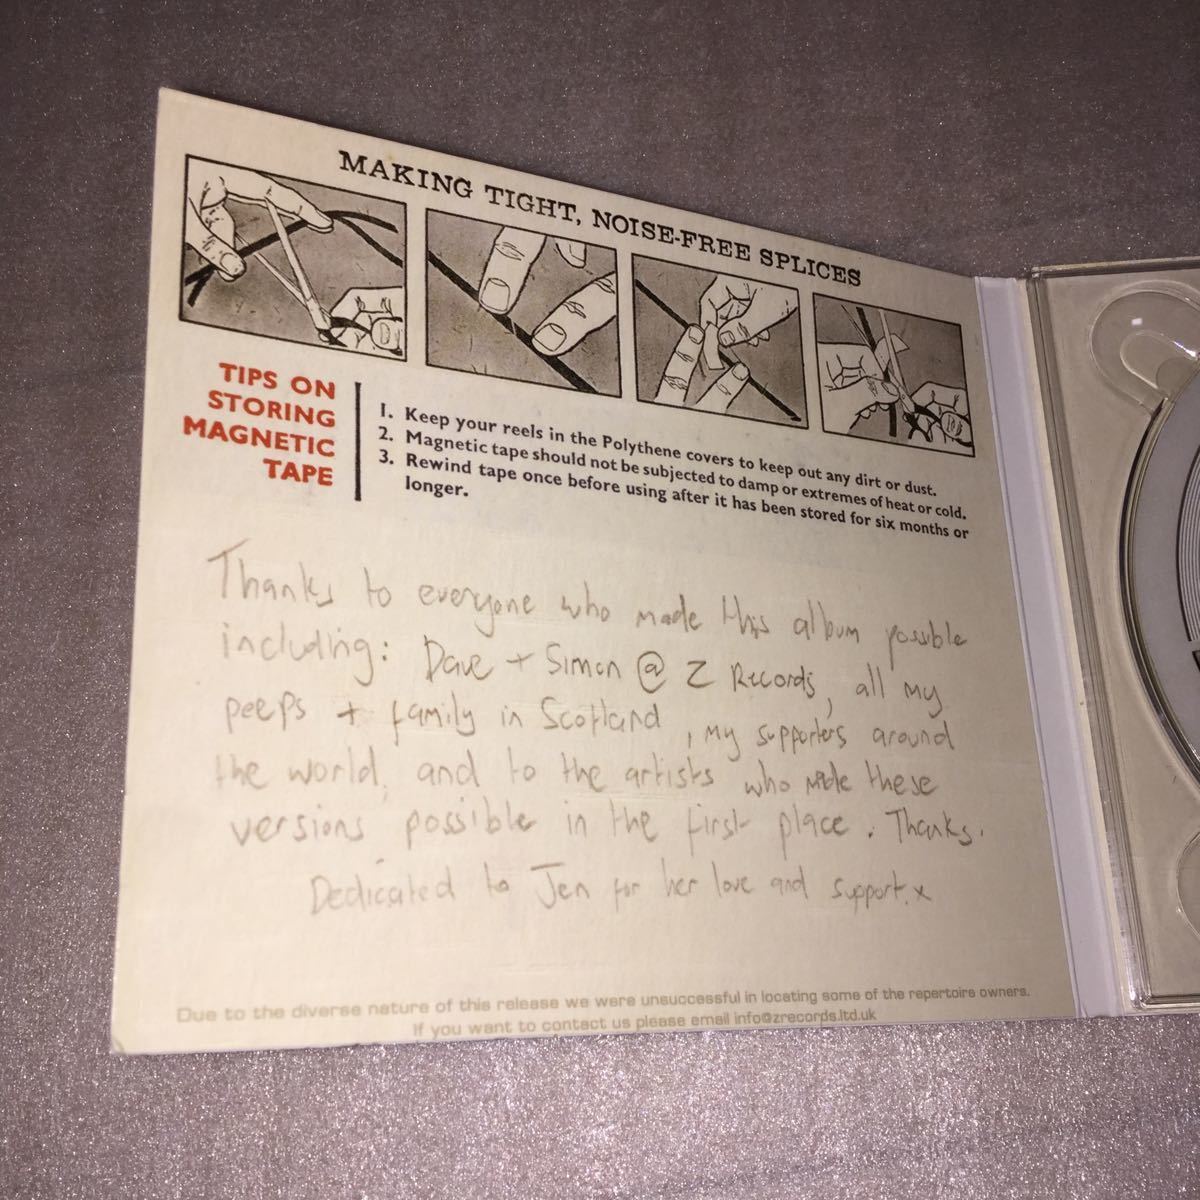 MAKING TIGHT, NOISE-FREE SPLICES
TIPS ON
STORING
MAGNETIC
TAPE
1. Keep your reels in the Polythene covers to keep out any dirt or dust.
2. Magnetic tape should not be subjected to damp or extremes of heat or cold.
3. Rewind tape once before using after it has been stored for six months or
longer.
Thanks to everyone who made this album possible
including: Dave + Simon @ Z Records, all my
peeps + family in Scotland, my supporters around
the world, and to the artists who made these
versions possible in the first place. Thanks.
Dedicated to Jen for her love and support. x
Due to the diverse nature of this release we were unsuccessful in locating some of the repertoire owners.
If you want to contact us please email info@zrecords.ltd.uk